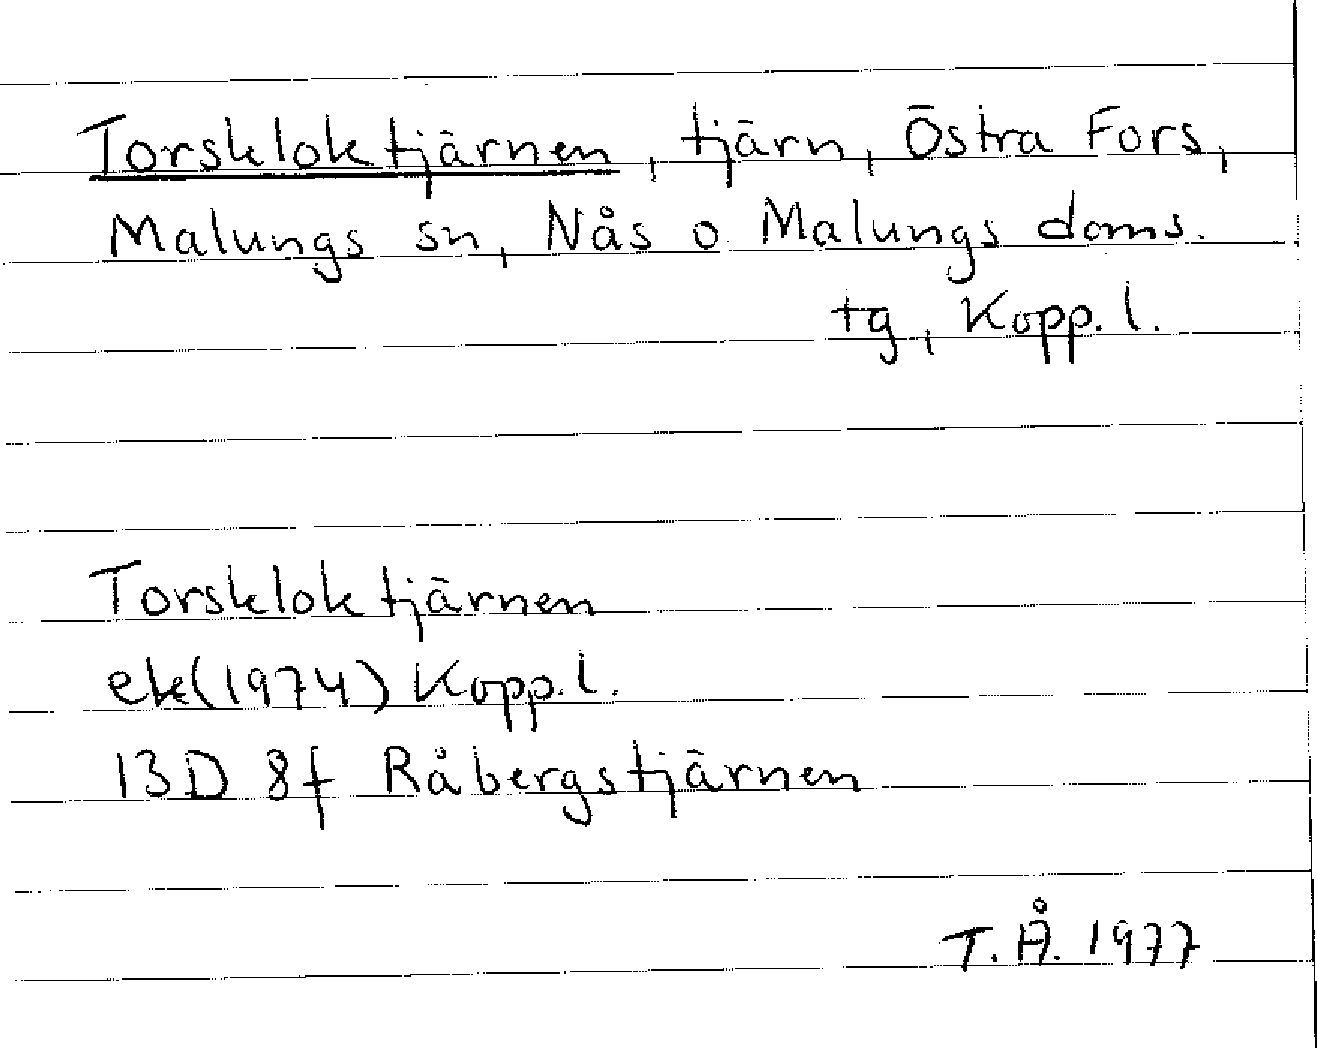 Torskloktjärnen, tjärn, Östra Fors,
Malungs sn, Nås o Malungs doms.
tg, Kopp. l.
Torskloktjärnen
ek(1974) Kopp. l.
13D 8f Råbergstjärnen
T. Å. 1977